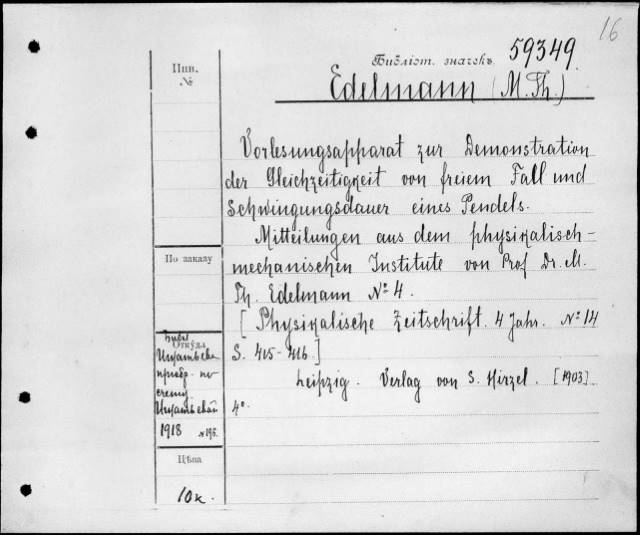 16
Библіот. значекъ 59349.
Инв.
№
Edelmann (M. Th.)
Vorlesungsapparat zur Demonstration
der Gleichzeitigkeit von freiem Fall und
Schwingungsdauer eines Pendels.
Mitteilungen aus dem physikalisch-
По заказу
mechanischen Institute von Prof Dr. M.
Th. Edelmann № 4.
[Physikalische Zeitschrift. 4 Jahr. № 14
Откуда
S. 415-416]
Leipzig. Verlag von S. Hirzel. [1903]
4°.
1918 №196.
Цѣна
10к.